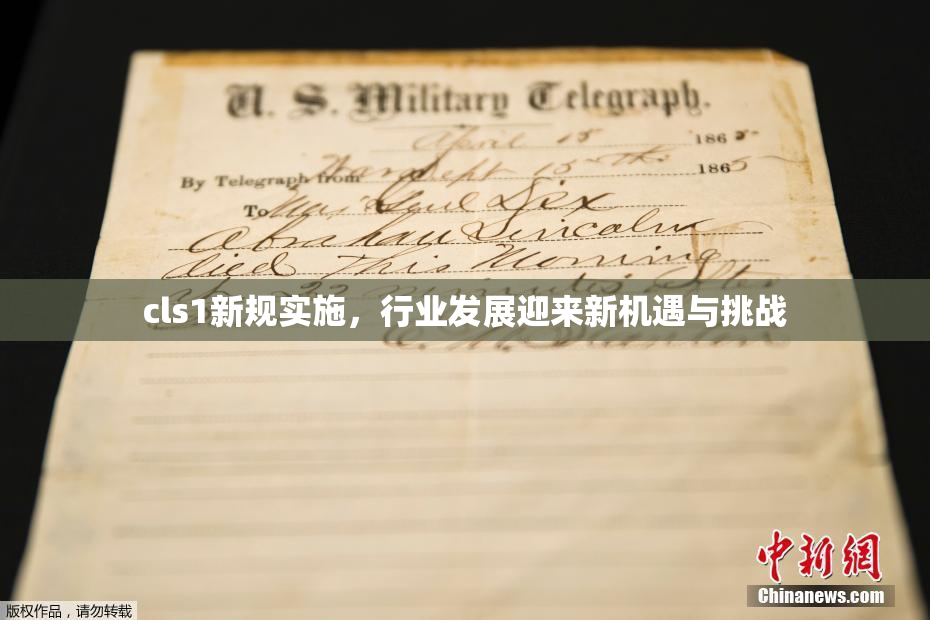 U. S. Military Telegraph.
April 15 1865
By Telegraph from War Dept 15th 1865
To Maj Genl Dix
Abraham Lincoln
died This Morning
22 minutes after
cls1新规实施，行业发展迎来新机遇与挑战
E. M. Stanton
中新网
Chinanews.com
版权作品，请勿转载